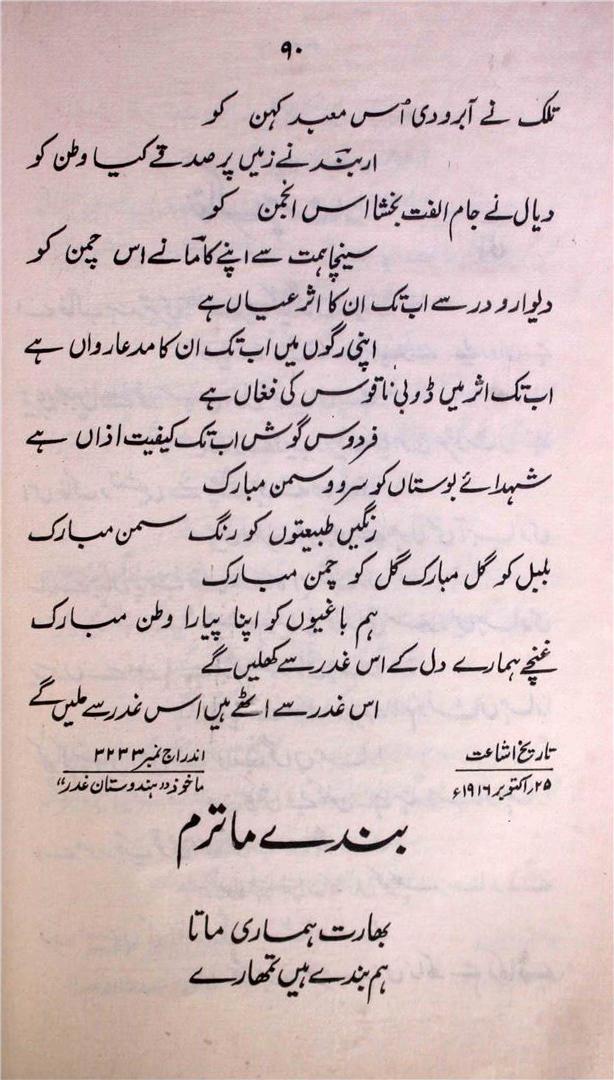 ۹۰
تلک نے آبرو دی اُس معبد کہن کو
اربند نے زمیں پر صدقے کیا وطن کو
دیال نے جام الفت بخشا اس انجمن کو
سینچا ہمت سے اپنے کاما نے اس چمن کو
دیوار و در سے اب تک ان کا اثر عیاں ہے
اپنی رگوں میں اب تک ان کا مدعا رواں ہے
اب تک اثر میں ڈوبی ناقوس کی فغاں ہے
فردوس گوش اب تک کیفیت اذاں ہے
شہدائے بوستاں کو سرو و سمن مبارک
رنگیں طبیعتوں کو رنگ سمن مبارک
بلبل کو گل مبارک گل کو چمن مبارک
ہم باغیوں کو اپنا پیارا وطن مبارک
غنچے ہمارے دل کے اس غدر سے کھلیں گے
اس غدر سے اٹھے ہیں اس غدر سے ملیں گے
تاریخ اشاعت اندراج نمبر ۳۲۳۳
۲۵ / اکتوبر ۱۹۱۶ء ماخوذ "ہندوستان غدر"
بندے ماترم
بھارت ہماری ماتا
ہم بندے ہیں تمھارے